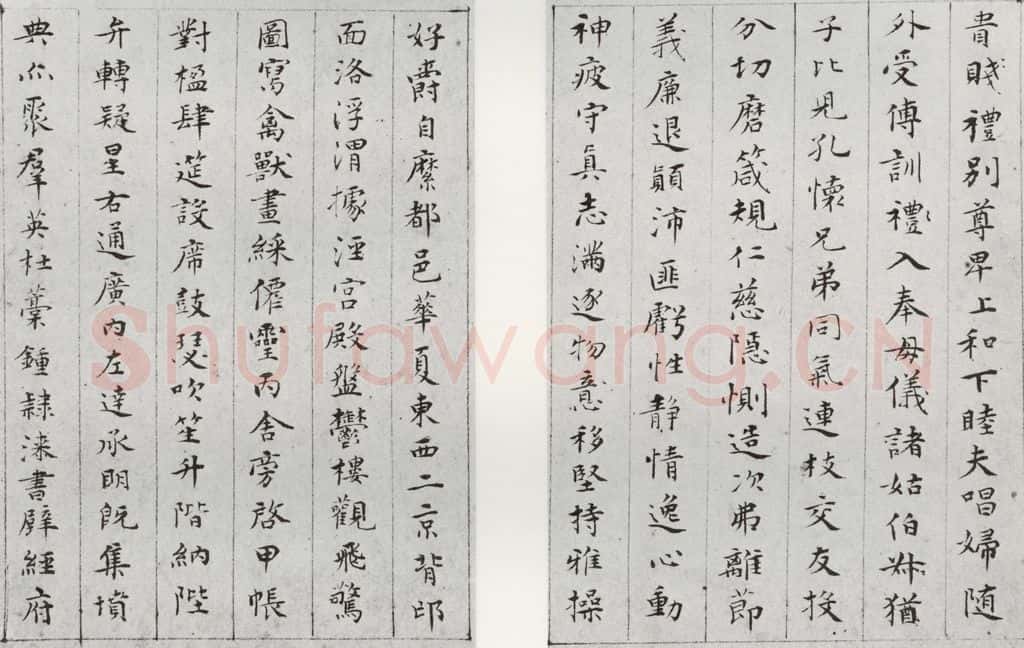 貴賤禮別尊卑上和下睦夫唱婦随
外受傅訓禮入奉母儀諸姑伯叔猶
子比児孔懐兄弟同氣連枝交友投
分切磨箴規仁慈隠惻造次弗離節
義廉退顛沛匪虧性静情逸心動
神疲守真志満逐物意移堅持雅操
好爵自縻都邑華夏東西二京背邙
面洛浮渭據涇宮殿盤鬱樓觀飛驚
圖寫禽獸畫綵僊靈丙舎旁啓甲帳
對楹肆筵設席鼓瑟吹笙升階納陛
弁轉疑星右通廣内左達承明既集墳
典亦聚羣英杜藁鍾隷漆書壁經府
Shufawang.CN